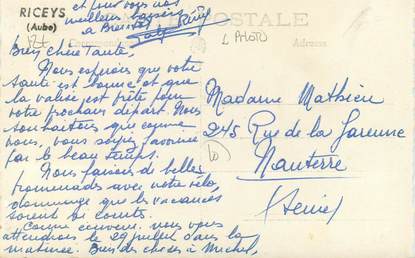 et pour vous nos
meilleurs baisers
RICEYS
(Aube)
POSTALE
Adresse
(PHOTO)
Bien chère Tante,
Nous espérons que votre
santé est bonne et que
la valise est prête pour
votre prochain départ. Nous
souhaitons que comme
nous, vous soyez favorisée
par le beau temps.
Nous faisons de belles
promenades avec notre vélo,
dommage que les vacances
soient si courtes.
Comme convenu nous vous
attendrons le 29 juillet dans la
matinée. Bien des choses à Michel,
Madame Mathieu
245 Rue de la Garenne
Nanterre
(Seine)